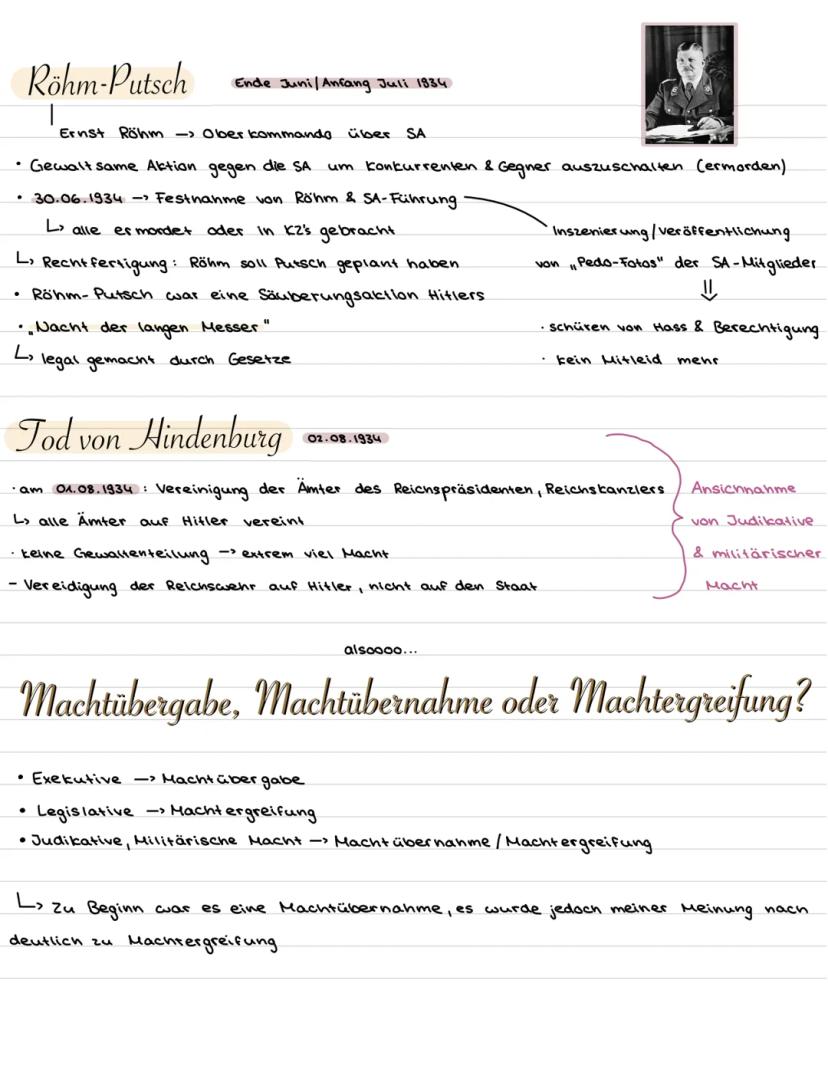 Röhm-Putsch Ende Juni/Anfang Juli 1934
Ernst Röhm -> Oberkommando über SA
• Gewaltsame Aktion gegen die SA um Konkurrenten & Gegner auszuschalten (ermorden)
• 30.06.1934 -> Festnahme von Röhm & SA-Führung
↳ alle ermordet oder in KZ's gebracht
Inszenierung/Veröffentlichung
↳ Rechtfertigung: Röhm soll Putsch geplant haben
von „Pedo-Fotos" der SA-Mitglieder
⇓
• Röhm-Putsch war eine Säuberungsaktion Hitlers
• „Nacht der langen Messer"
· schüren von Hass & Berechtigung
↳ legal gemacht durch Gesetze
· kein Mitleid mehr
Tod von Hindenburg 02.08.1934
· am 01.08.1934: Vereinigung der Ämter des Reichspräsidenten, Reichskanzlers
↳ alle Ämter auf Hitler vereint
· keine Gewaltenteilung -> extrem viel Macht
- Vereidigung der Reichswehr auf Hitler, nicht auf den Staat
Ansichnahme
von Judikative
& militärischer
Macht
alsoooo...
Machtübergabe, Machtübernahme oder Machtergreifung?
• Exekutive -> Machtübergabe
• Legislative -> Machtergreifung
• Judikative, Militärische Macht -> Machtübernahme/Machtergreifung
↳ Zu Beginn war es eine Machtübernahme, es wurde jedoch meiner Meinung nach
deutlich zu Machtergreifung